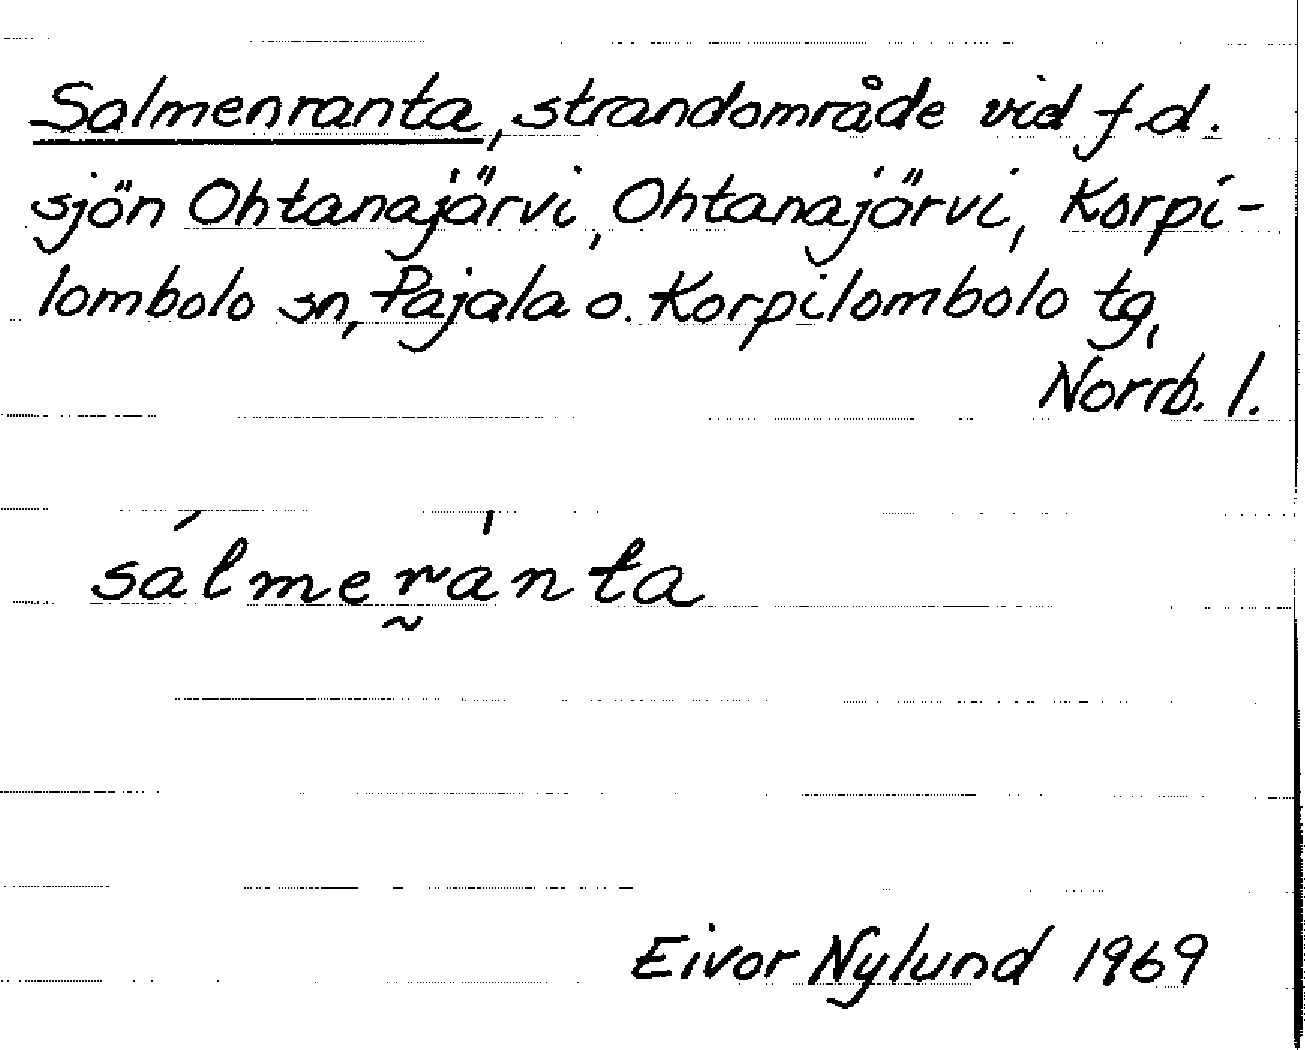 Salmenranta, strandområde vid f.d.
sjön Ohtanajärvi, Ohtanajärvi, Korpi-
lombolo sn, Pajala o. Korpilombolo tg,
Norrb. l.
sálmer̰a̍nta
Eivor Nylund 1969